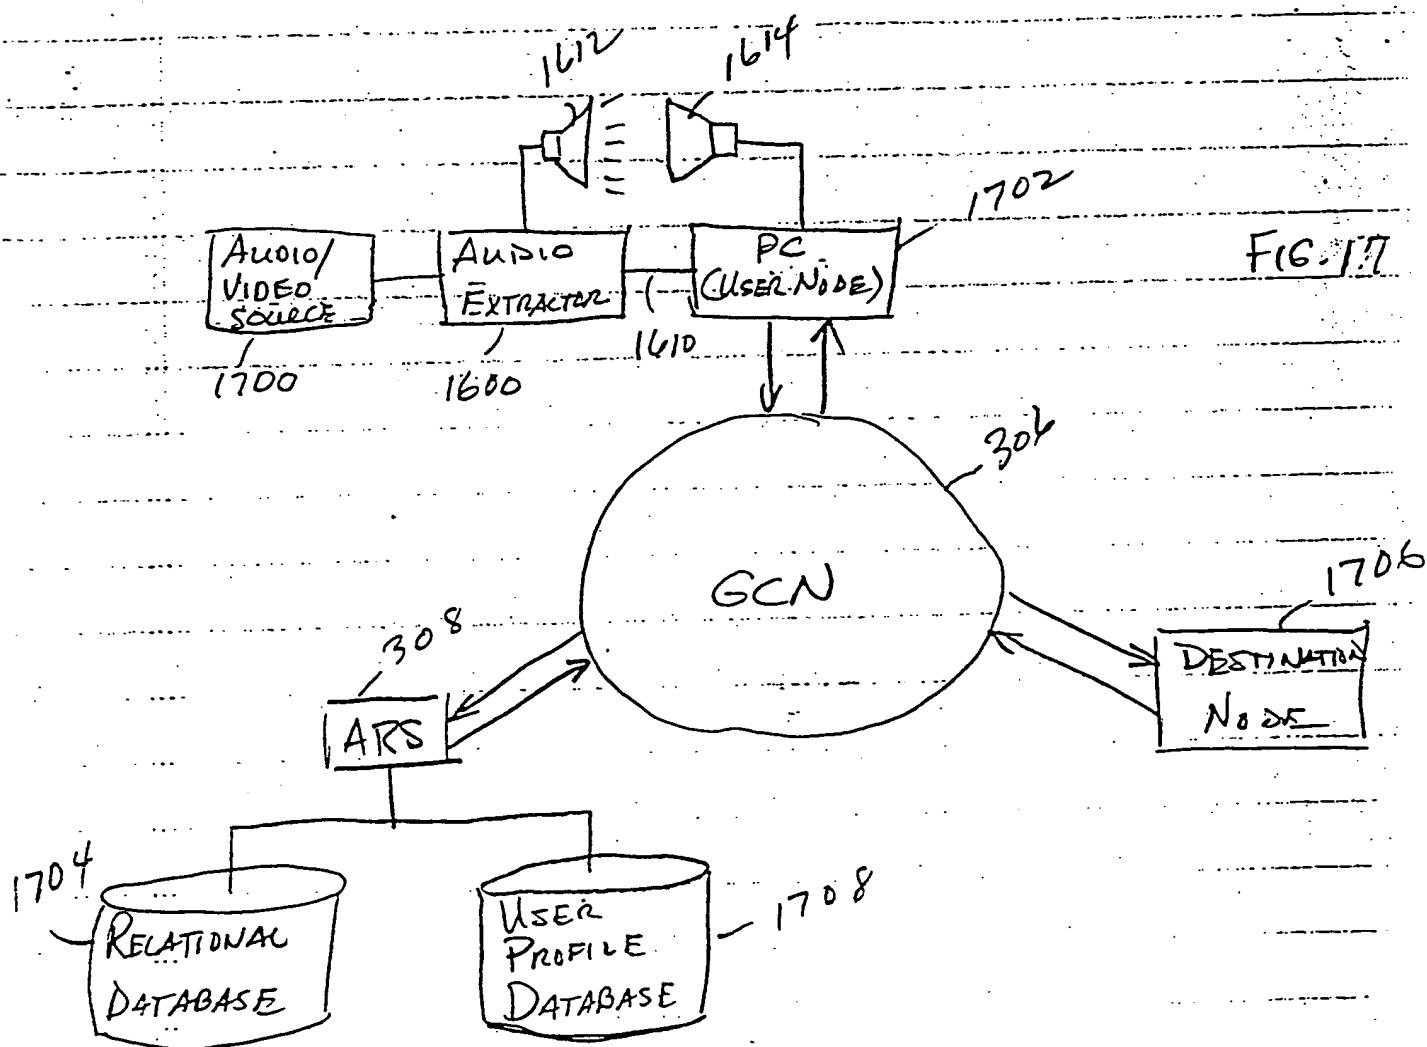 1612
1614
1702
FIG. 17
AUDIO/
VIDEO
SOURCE
AUDIO
EXTRACTOR
PC
(USER NODE)
1700
1600
1610
306
GCN
1706
DESTINATION
NODE
308
ARS
1704
RELATIONAL
DATABASE
USER
PROFILE
DATABASE
1708